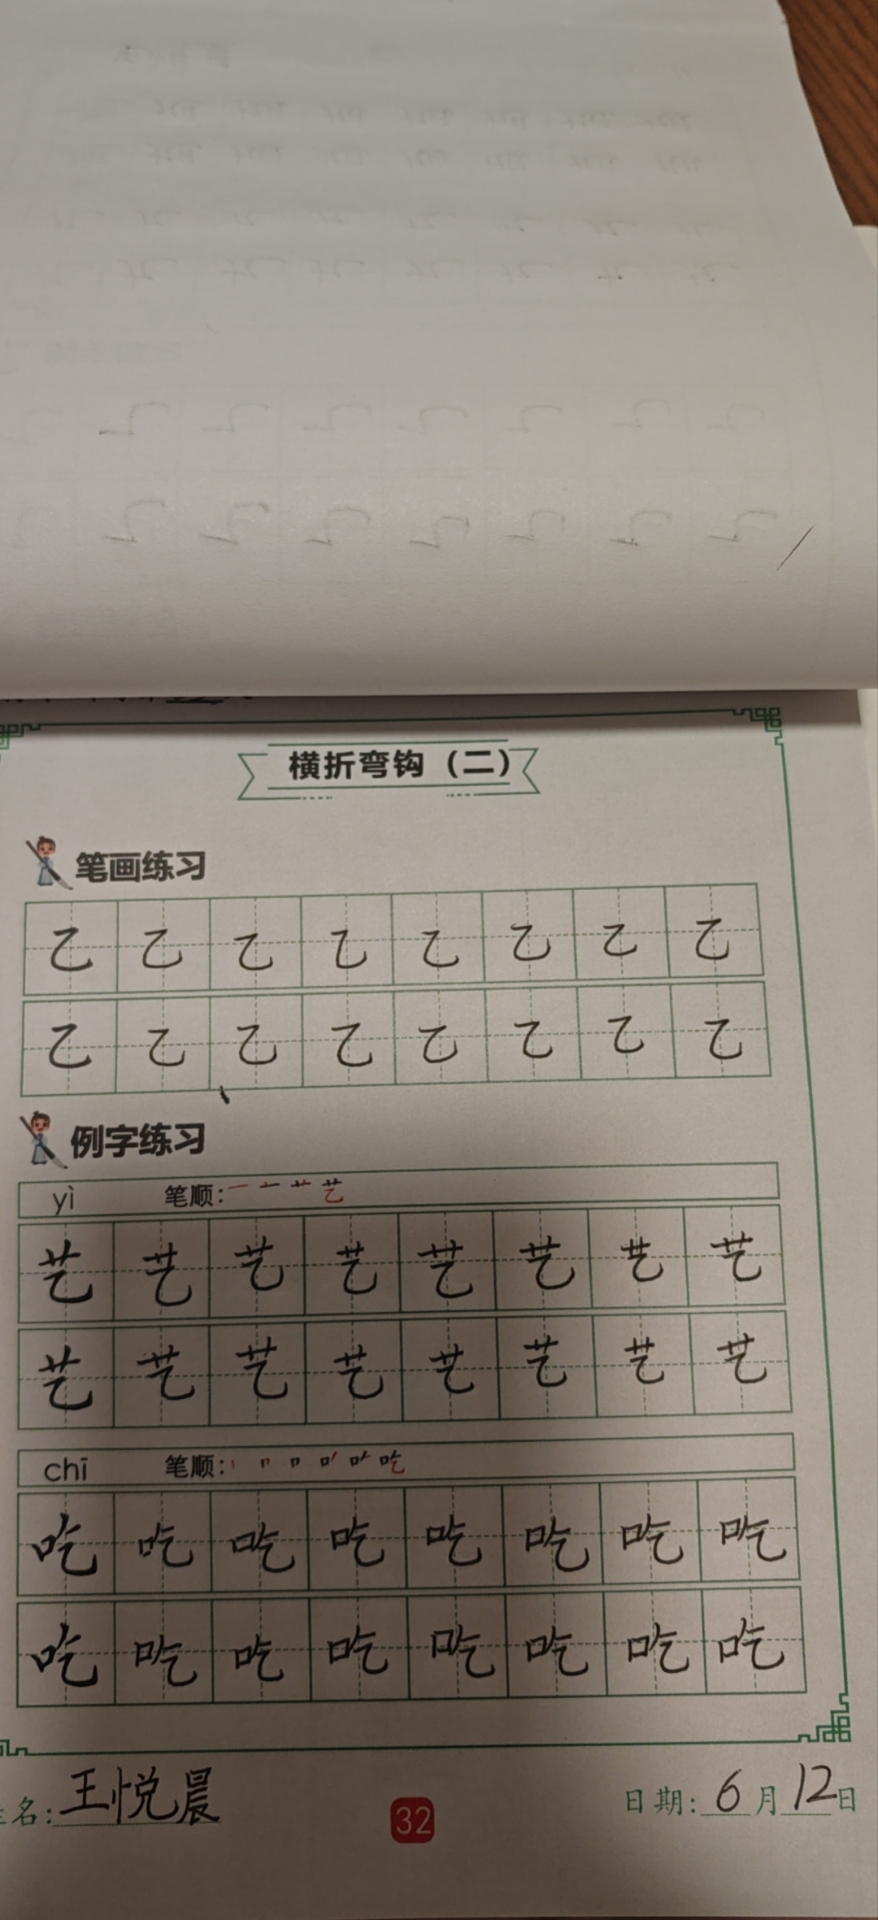 横折弯钩（二）
笔画练习
乙 乙 乙 乙 乙 乙 乙 乙
乙 乙 乙 乙 乙 乙 乙 乙
例字练习
yì 笔顺: 艺
艺 艺 艺 艺 艺 艺 艺 艺
艺 艺 艺 艺 艺 艺 艺 艺
chī 笔顺: 吃
吃 吃 吃 吃 吃 吃 吃 吃
吃 吃 吃 吃 吃 吃 吃 吃
名: 王悦晨 32 日期: 6月12日